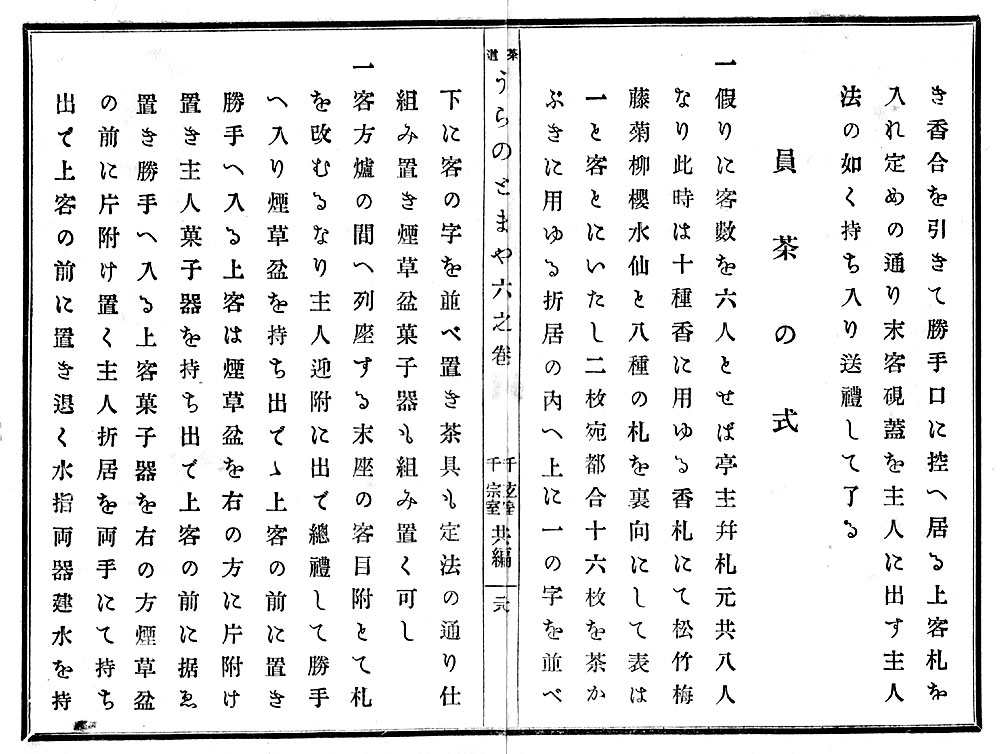 き香合を引きて勝手口に控へ居る上客札を
入れ定めの通り末客硯蓋を主人に出す主人
法の如く持ち入り送禮して了る
員茶の式
一假りに客數を六人とせば亭主幷札元共八人
なり此時は十種香に用ゆる香札にて松竹梅
藤菊柳櫻水仙と八種の札を裏向にして表は
一と客とにいたし二枚宛都合十六枚を茶か
ぶきに用ゆる折居の內へ上に一の字を並べ
茶道うらのとまや六之卷
千玄室
千宗室
共編
元
下に客の字を並べ置き茶具も定法の通り仕
組み置き煙草盆菓子器も組み置く可し
一客方爐の間へ列座する末座の客目附とて札
を改むるなり主人迎附に出で總禮して勝手
へ入り煙草盆を持ち出でゝ上客の前に置き
勝手へ入る上客は煙草盆を右の方に片附け
置き主人菓子器を持ち出で上客の前に据ゑ
置き勝手へ入る上客菓子器を右の方煙草盆
の前に片附け置く主人折居を両手にて持ち
出で上客の前に置き退く水指両器建水を持